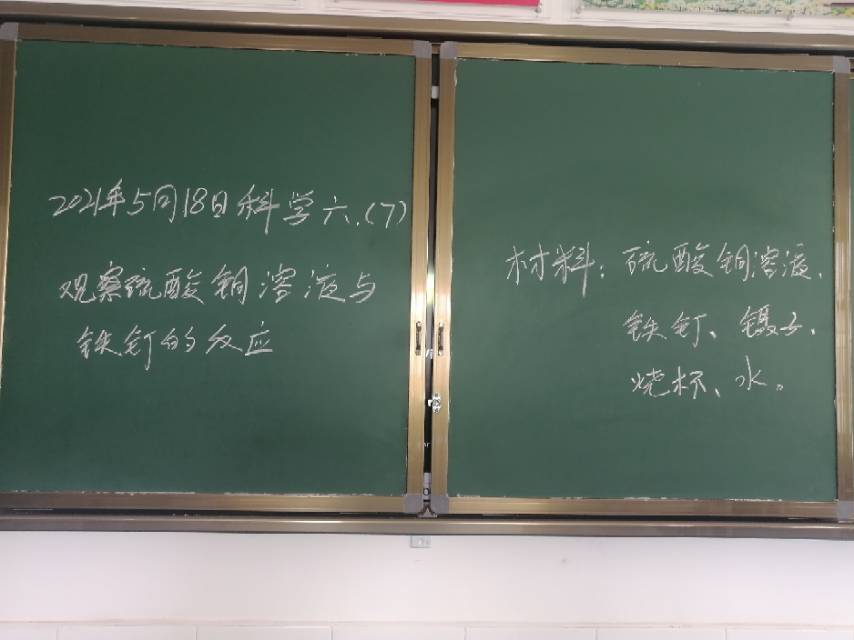 2021年5月18日科学六.(7)
观察硫酸铜溶液与
铁钉的反应
材料：硫酸铜溶液、
铁钉、镊子、
烧杯、水。